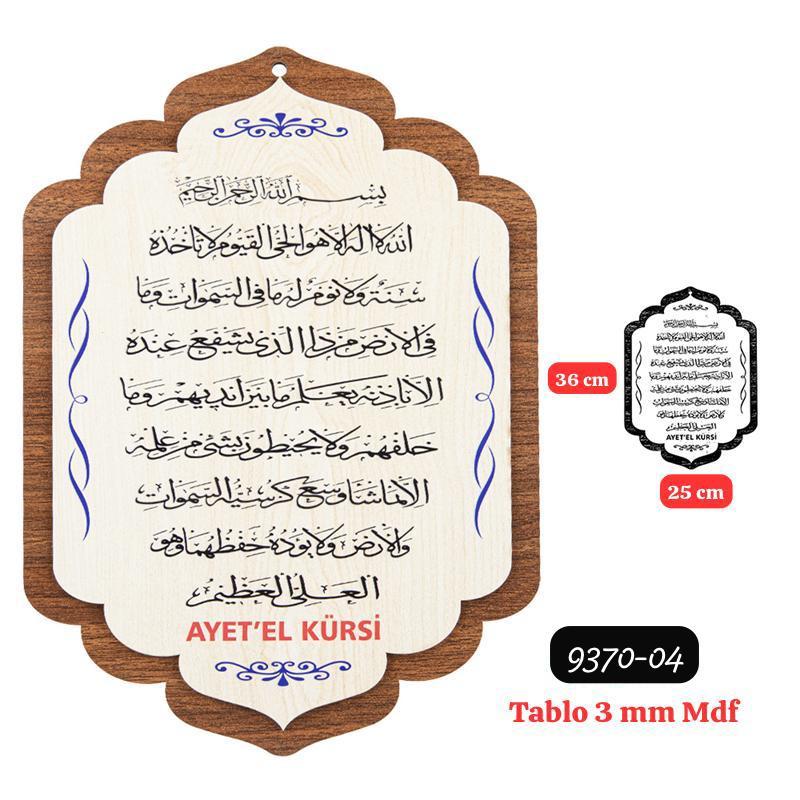 بسم الله الرحمن الرحيم
الله لا اله الا هو الحي القيوم لا تأخذه
سنة ولا نوم له ما في السموات وما
في الارض من ذا الذي يشفع عنده
الا باذنه يعلم ما بين أيديهم وما
خلفهم ولا يحيطون بشئ من علمه
الا بما شا وسع كرسيه السموات
والارض ولا يؤده حفظهما وهو
العلي العظيم
AYET'EL KÜRSİ
36 cm
25 cm
9370-04
Tablo 3 mm Mdf